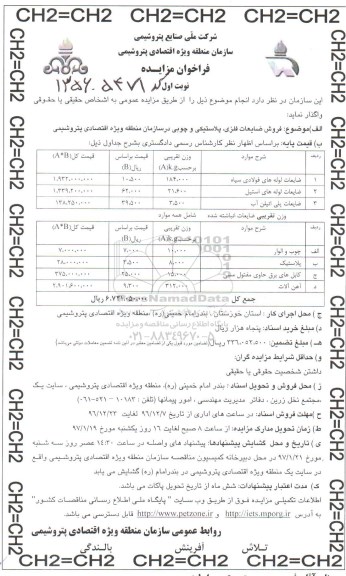 CH2=CH2 CH2=CH2 CH2=CH2 CH2=CH2 CH2=CH2
شرکت ملی صنایع پتروشیمی
سازمان منطقه ویژه اقتصادی پتروشیمی
فراخوان مزایده
نوبت اول
این سازمان در نظر دارد انجام موضوع ذیل را از طریق مزایده عمومی به اشخاص حقیقی یا حقوقی
واگذار نماید:
الف) موضوع: فروش ضایعات فلزی، پلاستیکی و چوبی در سازمان منطقه ویژه اقتصادی پتروشیمی
ب) قیمت پایه: براساس اظهار نظر کارشناس رسمی دادگستری بشرح جداول ذیل:
ردیف شرح موارد وزن تقریبی برحسب k.g(A) قیمت براساس ریال(B) قیمت کل(A*B)
۱ ضایعات لوله های فولادی سیاه ۱۸۴،۰۰۰ ۱۰،۵۰۰ ۱،۹۳۲،۰۰۰،۰۰۰
۲ ضایعات لوله های استیل
۳ ضایعات پلی اتیلن آب ۳،۵۰۰ ۳۹،۵۰۰ ۱۳۸،۲۵۰،۰۰۰
وزن تقریبی ضایعات انباشته شده شامل همه موارد
ردیف شرح موارد وزن تقریبی برحسب k.g(A) قیمت براساس ریال(B) قیمت کل(A*B)
الف چوب و الوار ۱۰،۰۰۰
ب پلاستیک ۸،۰۰۰ ۳،۵۰۰ ۲۸،۰۰۰،۰۰۰
ج کابل های برق حاوی مفتول مسی
د آهن آلات ۳۱۲،۰۰۰ ۹،۳۰۰ ۲،۹۰۱،۶۰۰،۰۰۰
جمع کل
ج) محل اجرای کار: استان خوزستان، بندر امام خمینی(ره) منطقه ویژه اقتصادی پتروشیمی
د) مبلغ خرید اسناد: پنجاه هزار ریال
هـ) مبلغ تضمین: ۳۳۶،۰۵۲،۵۰۰ ریال
و) حداقل شرایط مزایده گران:
داشتن شخصیت حقوقی یا حقیقی
ز) محل فروش و تحویل اسناد: بندر امام خمینی (ره)، منطقه ویژه اقتصادی پتروشیمی، سایت یک
مجتمع نخل زرین، دفاتر مدیریت مهندسی، امور پیمانها
ح) مهلت فروش اسناد: در ساعت های اداری از تاریخ ۹۶/۱۲/۷ لغایت ۹۶/۱۲/۲۳
ط) زمان تحویل مدارک مزایده: از ساعت ۸ صبح لغایت ۱۶ روز یکشنبه مورخ ۹۷/۱/۱۹
ی) تاریخ و محل گشایش پیشنهادها: پیشنهاد های واصله در ساعت ۱۴:۳۰ عصر روز سه شنبه
مورخ ۹۷/۱/۲۱ در محل دبیرخانه کمیسیون مناقصه سازمان منطقه ویژه اقتصادی پتروشیمی واقع
در سایت یک منطقه ویژه اقتصادی پتروشیمی در بندرامام (ره) گشایش می یابد.
ک) مدت اعتبار پیشنهادات: شش ماه از تاریخ تحویل پاکات می باشد.
اطلاعات تکمیلی مزایده فوق از طریق وب سایت " پایگاه ملی اطلاع رسانی مناقصات کشور"
به آدرس http://iets.mporg.ir و http://www.petzone.ir قابل دسترسی می باشد.
روابط عمومی سازمان منطقه ویژه اقتصادی پتروشیمی
تلاش آفرینش بالندگی
CH2=CH2 CH2=CH2 CH2=CH2 CH2=CH2 CH2=CH2